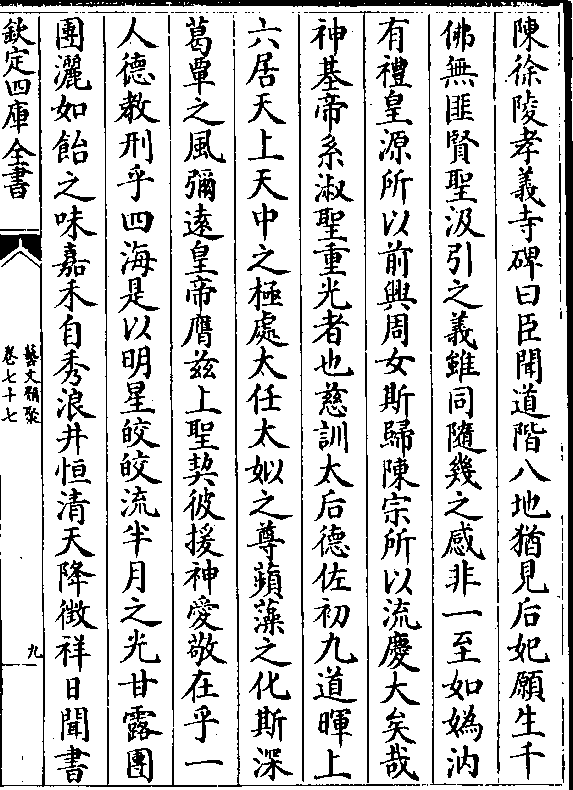 陳徐陵孝義寺碑曰臣聞道階八地猶見后妃願生千
佛無匪賢聖汲引之義雖同隨幾之感非一至如媯汭
有禮皇源所以前興周女斯歸陳宗所以流慶大矣哉
神基帝系淑聖重光者也慈訓太后德佐初九道暉上
六居天上天中之極處太任太姒之尊蘋藻之化斯深
葛覃之風彌遠皇帝膺兹上聖契彼援神愛敬在乎一
人德教刑乎四海是以明星皎皎流半月之光甘露團
團灑如飴之味嘉禾自秀浪井恒清天降徵祥日聞書
欽定四庫全書
藝文類聚
卷七十七
九